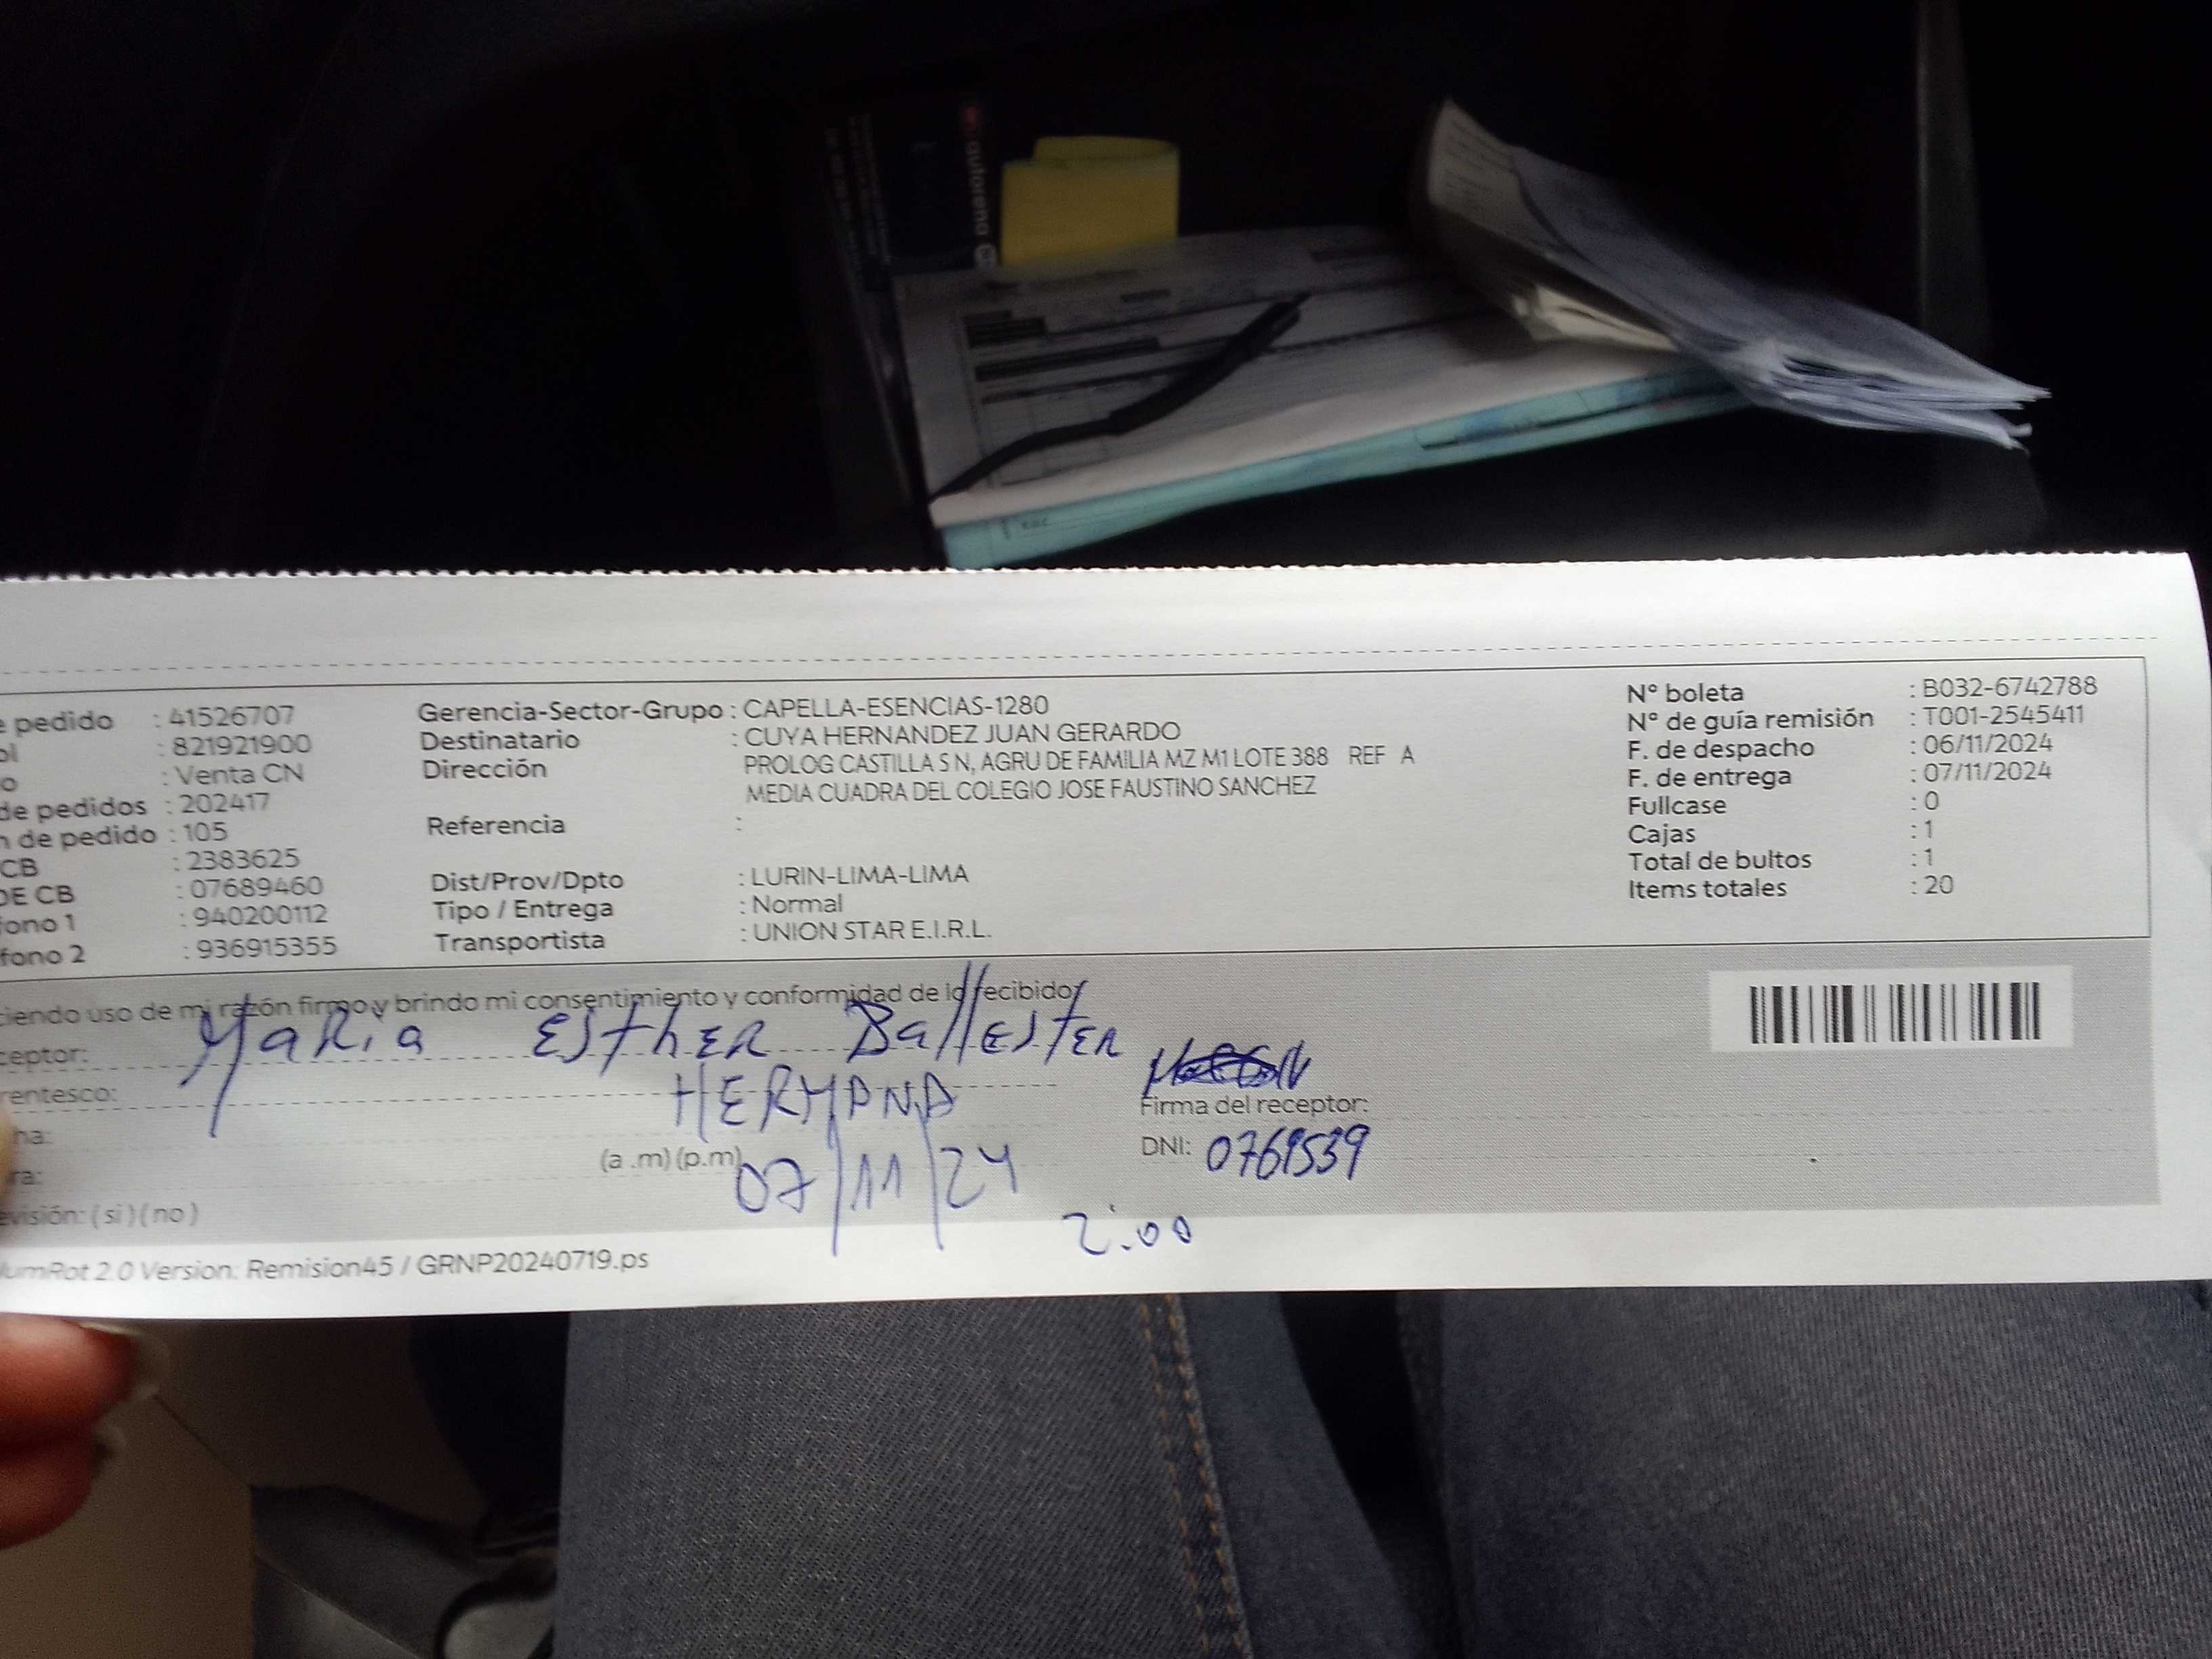 e pedido : 41526707
ol : 821921900
o : Venta CN
de pedidos : 202417
n de pedido : 105
CB : 2383625
DE CB : 07689460
fono 1 : 940200112
fono 2 : 936915355
Gerencia-Sector-Grupo : CAPELLA-ESENCIAS-1280
Destinatario : CUYA HERNANDEZ JUAN GERARDO
Dirección PROLOG CASTILLA S N, AGRU DE FAMILIA MZ M1 LOTE 388 REF A
MEDIA CUADRA DEL COLEGIO JOSE FAUSTINO SANCHEZ
Referencia :
Dist/Prov/Dpto : LURIN-LIMA-LIMA
Tipo / Entrega : Normal
Transportista : UNION STAR E.I.R.L.
N° boleta : B032-6742788
N° de guía remisión : T001-2545411
F. de despacho : 06/11/2024
F. de entrega : 07/11/2024
Fullcase : 0
Cajas : 1
Total de bultos : 1
Items totales : 20
ciendo uso de mi razón firmo y brindo mi consentimiento y conformidad de lo recibido
ceptor: MaRia EsthER BallEstER
rentesco: HERMANA
ha: 07/11/24
ra: (a .m) (p.m) 2:00
evisión: ( si ) ( no )
Firma del receptor:
DNI: 0761539
umRot 2.0 Version: Remision45 / GRNP20240719.ps
autoreno